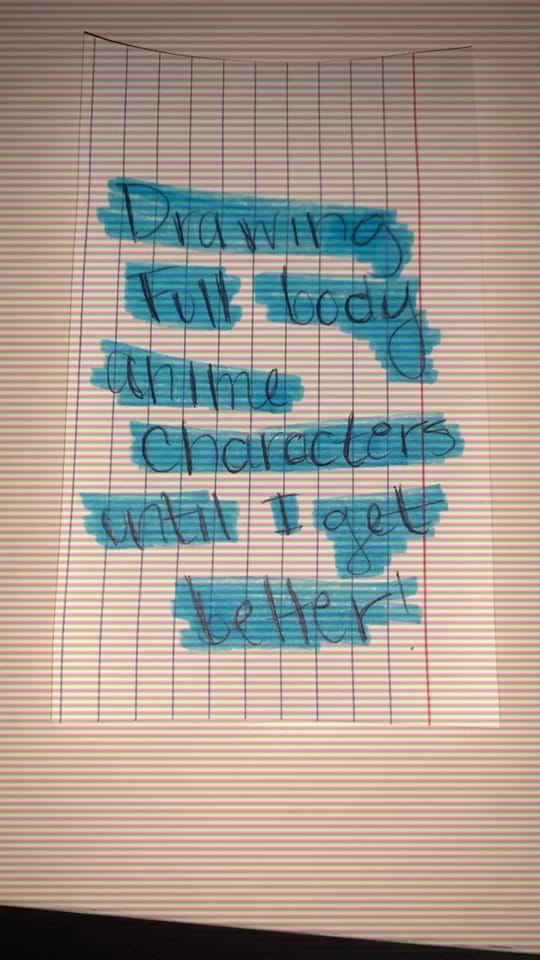 Drawing
Full body
anime
characters
until I get
better!